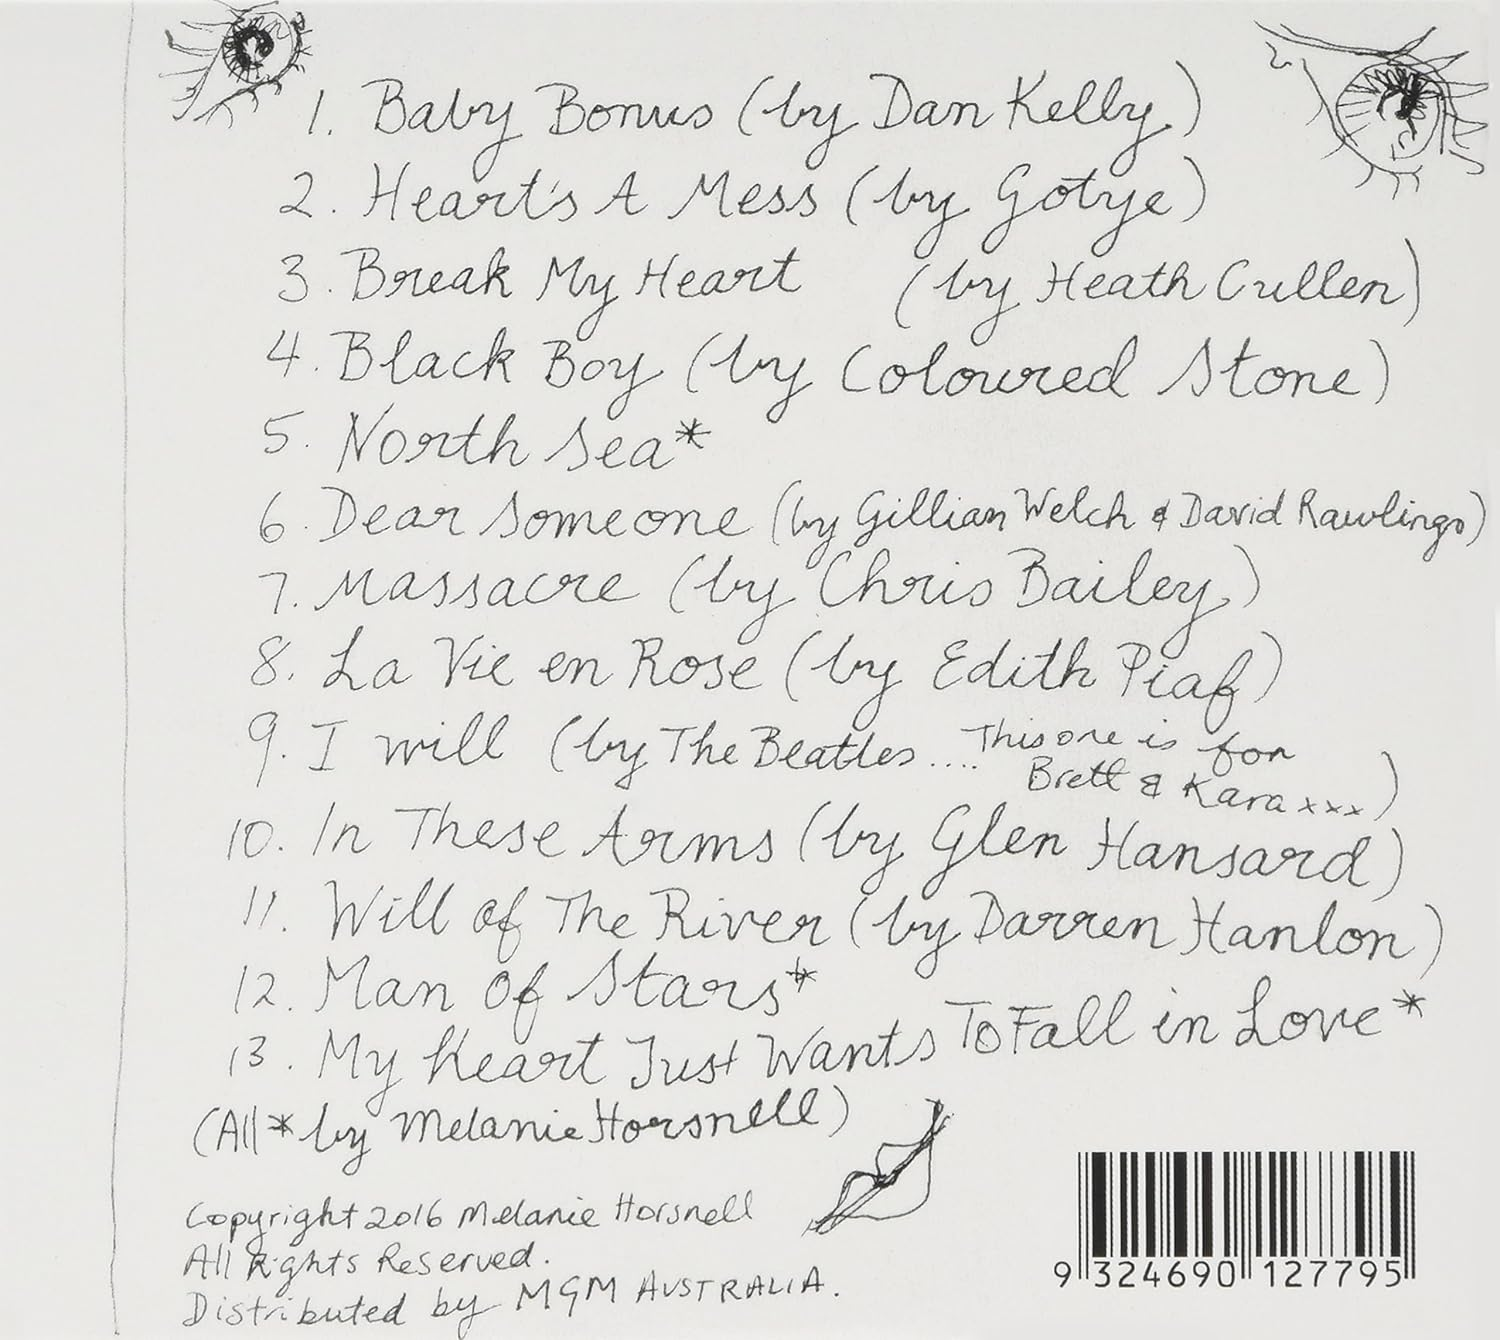 1. Baby Bonus (by Dan Kelly)
2. Heart's A Mess (by Gotye)
3. Break My Heart (by Heath Cullen)
4. Black Boy (by Coloured Stone)
5. North Sea*
6. Dear Someone (by Gillian Welch & David Rawlings)
7. Massacre (by Chris Bailey)
8. La Vie en Rose (by Edith Piaf)
9. I will (by The Beatles .... This one is for
Brett & Kara xxx)
10. In These Arms (by Glen Hansard)
11. Will of The River (by Darren Hanlon)
12. Man Of Stars*
13. My Heart Just Wants To Fall in Love*
(All * by Melanie Horsnell)
Copyright 2016 Melanie Horsnell
All Rights Reserved.
Distributed by MGM AUSTRALIA.
9 324690 127795